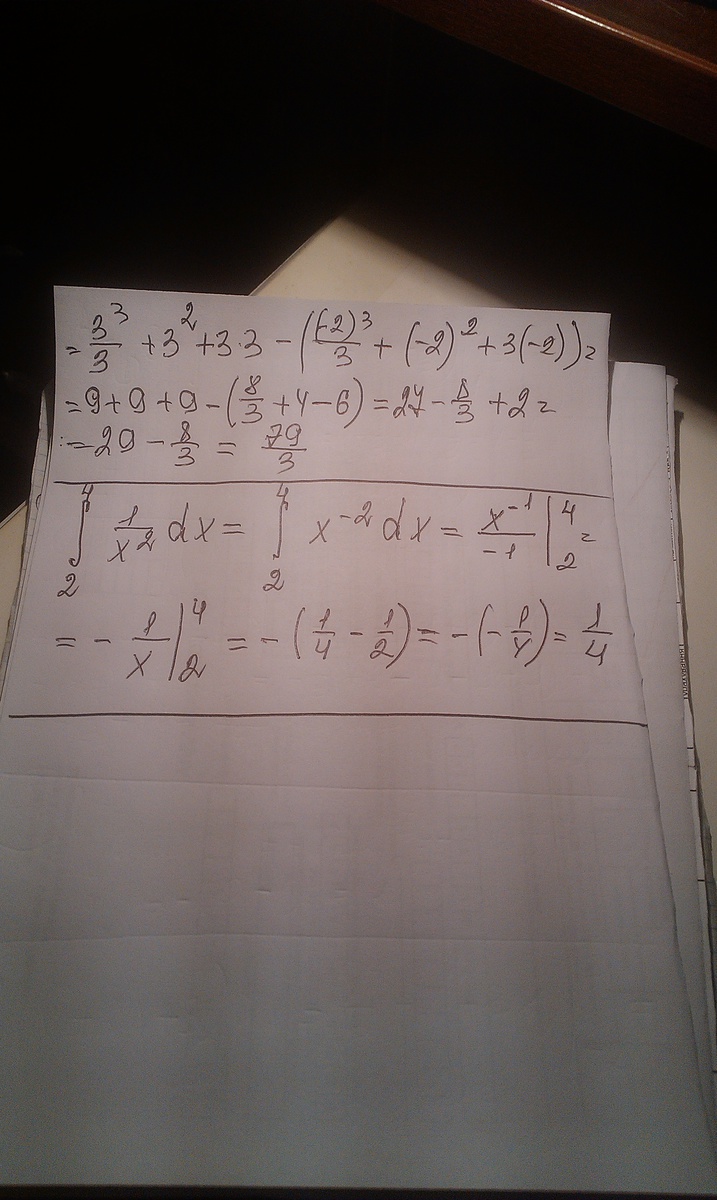 = 3³/3 + 3² + 3·3 − ((-2)³/3 + (-2)² + 3(-2)) =
= 9 + 9 + 9 − (8/3 + 4 − 6) = 27 − 8/3 + 2 =
= 29 − 8/3 = 79/3
∫₂⁴ 1/x² dx = ∫₂⁴ x⁻² dx = x⁻¹/−1 |₂⁴ =
= − 1/x |₂⁴ = −(1/4 − 1/2) = −(−1/4) = 1/4